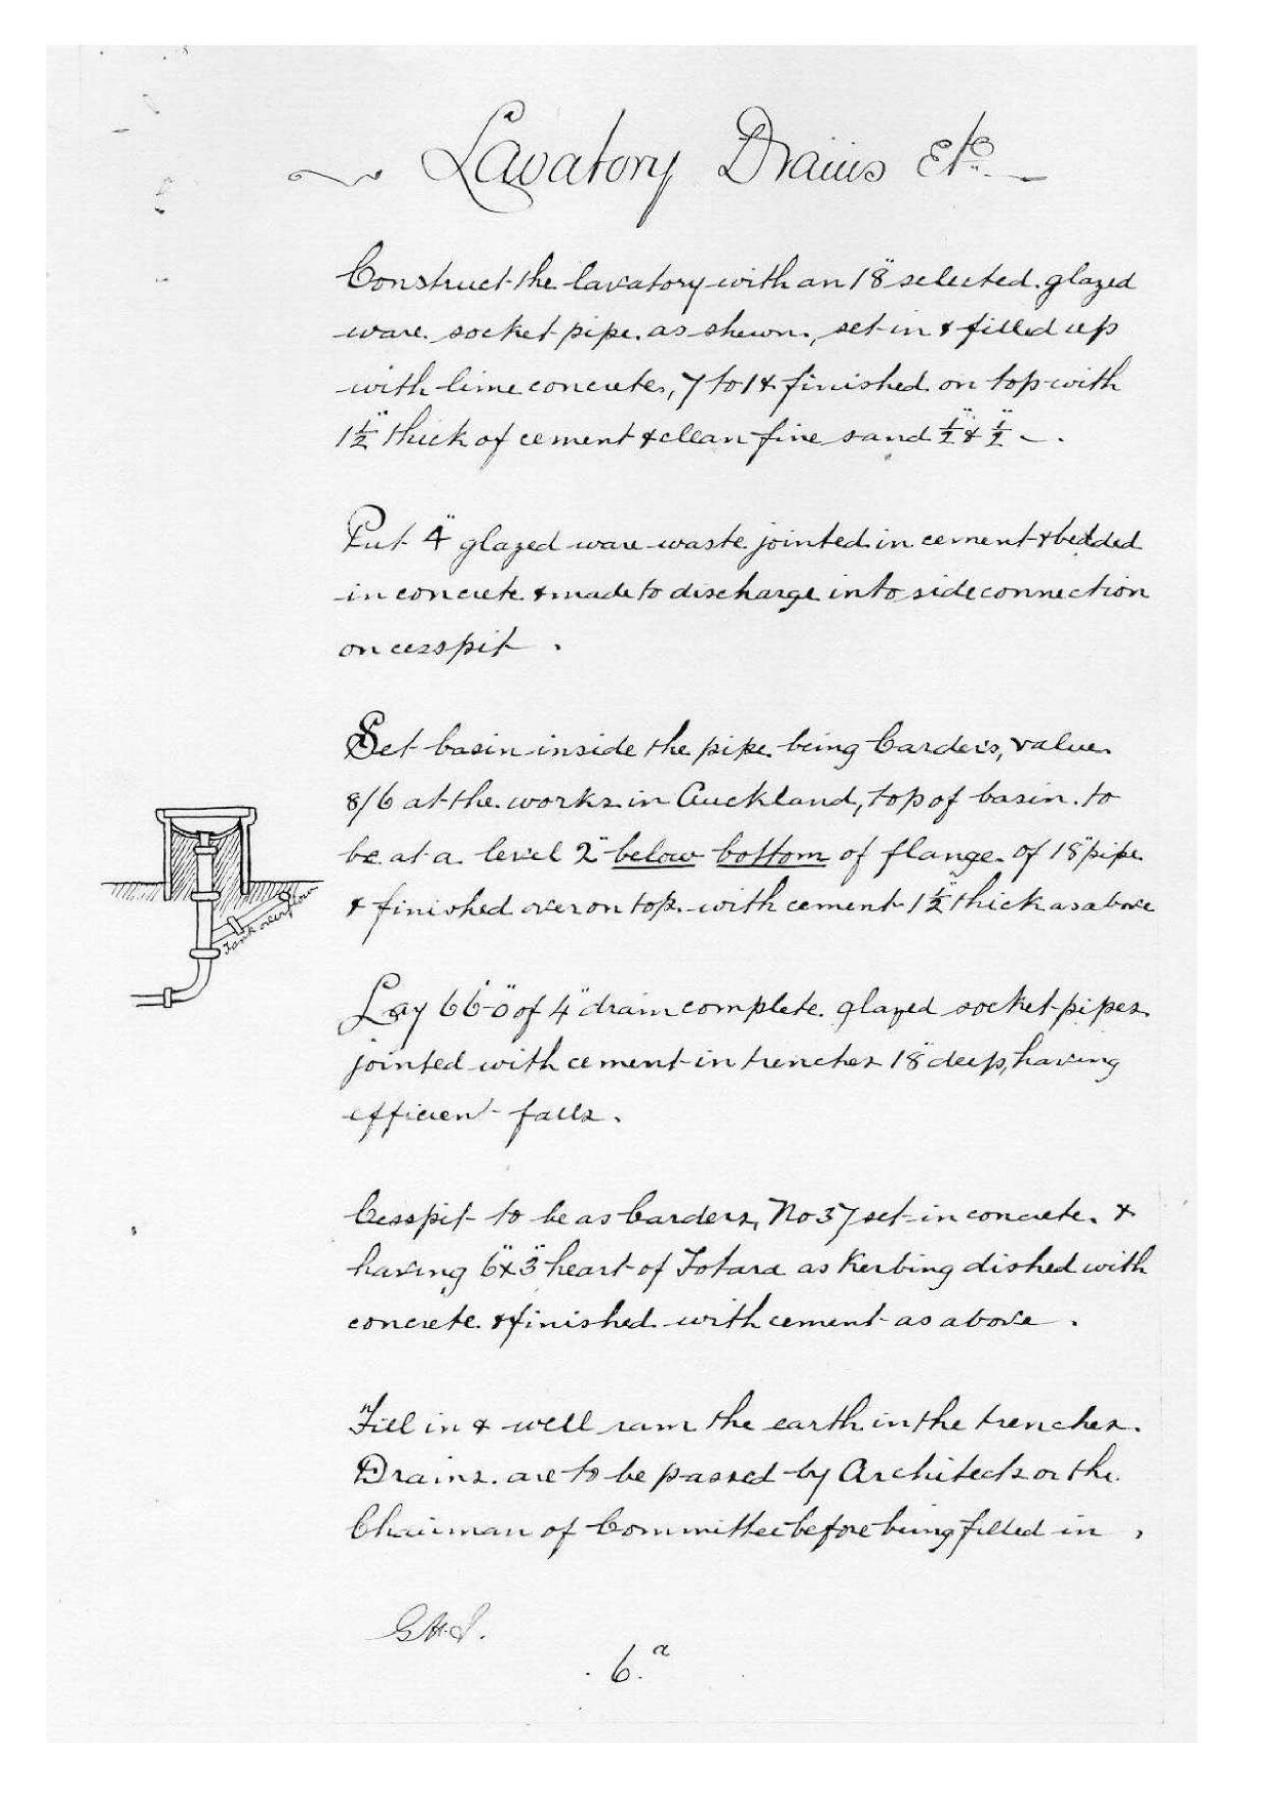 Lavatory Drains Etc.
Construct the lavatory with an 18" selected glazed
ware socket pipe as shewn, set in & filled up
with lime concrete, 7 to 1 & finished on top with
1½" thick of cement & clean fine sand ½" & ½" -.
Put 4" glazed ware waste jointed in cement & bedded
in concrete & made to discharge into side connection
on cesspit.
Set basin inside the pipe being Carders, value
8/6 at the works in Auckland, top of basin to
be at a level 2" below bottom of flange of 18" pipe
& finished over on top with cement 1½" thick as above
Tank overflow
Lay 66'-0" of 4" drain complete glazed socket pipes
jointed with cement in trenches 18" deep, having
efficient falls.
Cesspit to be as Carders, No 37 set in concrete &
having 6" x 3" heart of Totara as Kerbing dished with
concrete & finished with cement as above.
Fill in & well ram the earth in the trenches.
Drains are to be passed by Architects or the
Chairman of Committee before being filled in,
6.a